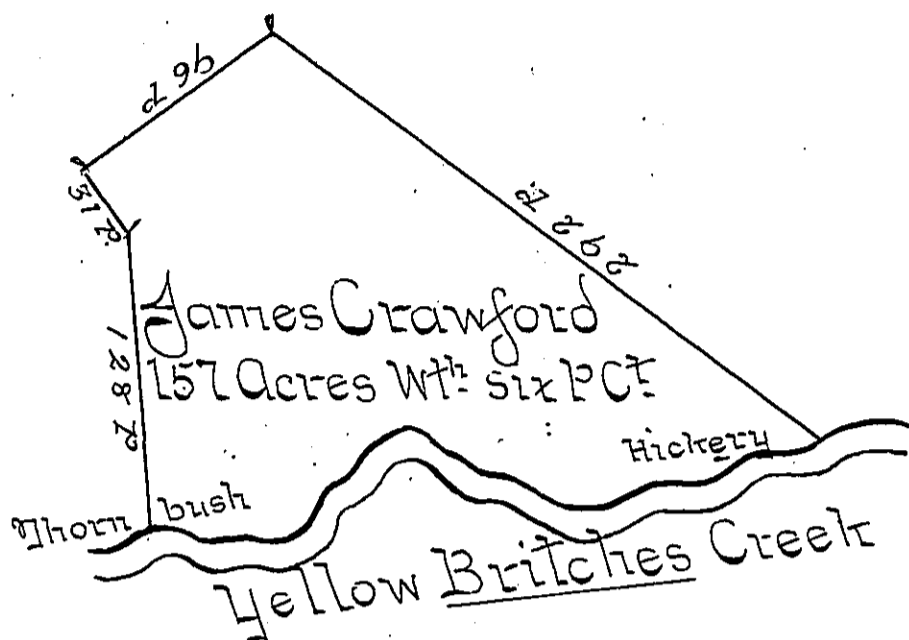 96 P
31 P.
292 P.
128 P
James Crawford
157 Acres Wth six P Ct
Hickery
Thorn bush
Yellow Britches Creek